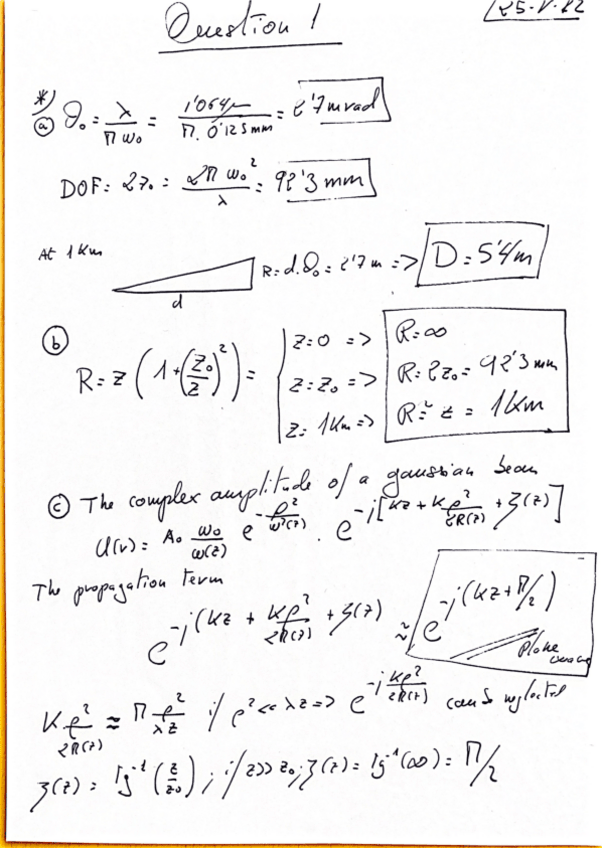 Question 1
25-V-12
*)
(a) θ₀ = λ / (π w₀) = 1'064μ / (π. 0'125mm) = 2'7mrad
DOF: 2z₀ = 2π w₀² / λ = 92'3 mm
At 1Km
d
R = d.θ₀ = 2'7m => D = 5'4m
(b) R = z (1 + (z₀/z)²) =
z = 0 => R = ∞
z = z₀ => R = 2z₀ = 92'3 mm
z = 1Km => R ≃ z = 1Km
(c) The complex amplitude of a gaussian beam
U(r) = A₀ w₀/w(z) e^(-ρ²/w²(z)) . e^(-j[kz + kρ²/2R(z) + ζ(z)])
The propagation term
e^(-j(kz + kρ²/2R(z) + ζ(z)) ≃ e^(-j(kz + π/2))
Plane
kρ²/2R(z) ≈ π ρ²/λz if ρ² << λz => e^(-j kρ²/2R(z)) can neglected
ζ(z) = tg⁻¹(z/z₀) ; if z >> z₀; ζ(z) = tg⁻¹(∞) = π/2